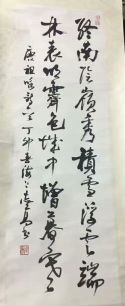 終南陰嶺秀積雪浮雲端
林表明霽色城中增暮寒
唐祖咏詩 丁卯